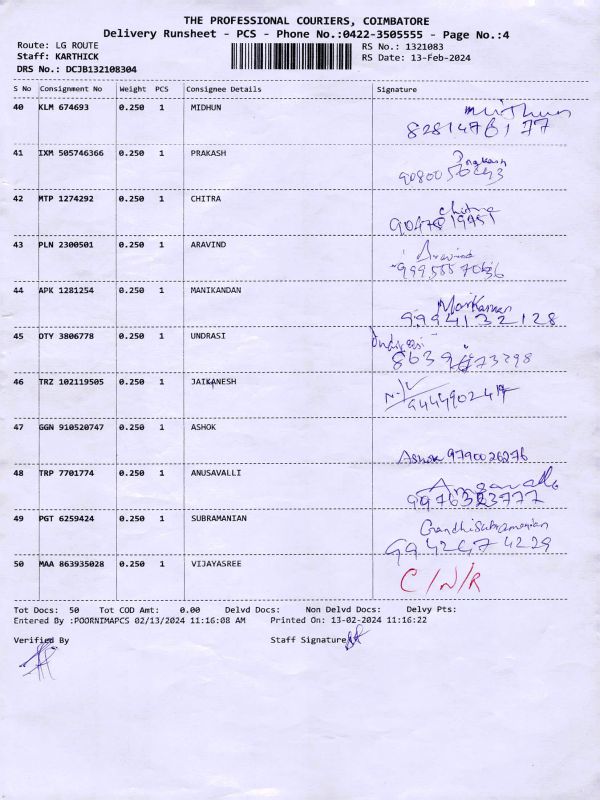 THE PROFESSIONAL COURIERS, COIMBATORE
Delivery Runsheet - PCS - Phone No.:0422-3505555 - Page No.:4
Route: LG ROUTE RS No.: 1321083
Staff: KARTHICK RS Date: 13-Feb-2024
DRS No.: DCJB132108304
S No Consignment No Weight PCS Consignee Details Signature
40 KLM 674693 0.250 1 MIDHUN Midhun
41 IXM 505746366 0.250 1 PRAKASH Prakash
42 MTP 1274292 0.250 1 CHITRA Chitra
43 PLN 2300501 0.250 1 ARAVIND Aravind
44 APK 1281254 0.250 1 MANIKANDAN
9994132128
45 DTY 3806778 0.250 1 UNDRASI
46 TRZ 102119505 0.250 1 JAIKANESH
47 GGN 910520747 0.250 1 ASHOK
Ashok 9790026276
48 TRP 7701774 0.250 1 ANUSAVALLI
49 PGT 6259424 0.250 1 SUBRAMANIAN GandhiSubramanian
9942474229
50 MAA 863935028 0.250 1 VIJAYASREE C/N/R
Tot Docs: 50 Tot COD Amt: 0.00 Delvd Docs: Non Delvd Docs: Delvy Pts:
Entered By :POORNIMAPCS 02/13/2024 11:16:08 AM Printed On: 13-02-2024 11:16:22
Verified By Staff Signature